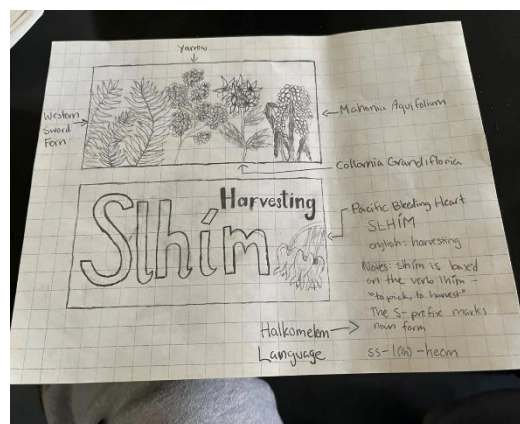 Yarrow
Western
Sword
Fern
Mahonia Aquifolium
Collomia Grandiflora
Harvesting
Slhím
Pacific Bleeding Heart
SLHÍM
english - harvesting
Notes: Slhím is based
on the verb lhím -
"to pick, to harvest"
The S- prefix marks
noun form
Halkomelem
Language
ss-l(th)-heem